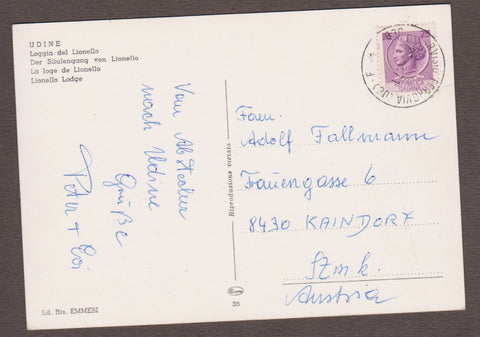 UDINE
Loggia del Lionello
Der Säulengang von Lionello
La loge de Lionello
Lionello Lodge
Vom Abstecher
nach Udine
Grüße
Peter + Evi
Ed. Ris. EMMEBI
Riproduzione vietata
35
Fam.
Adolf Fallmann
Frauengasse 6
8430 KAINDORF
Stmk.
Austria